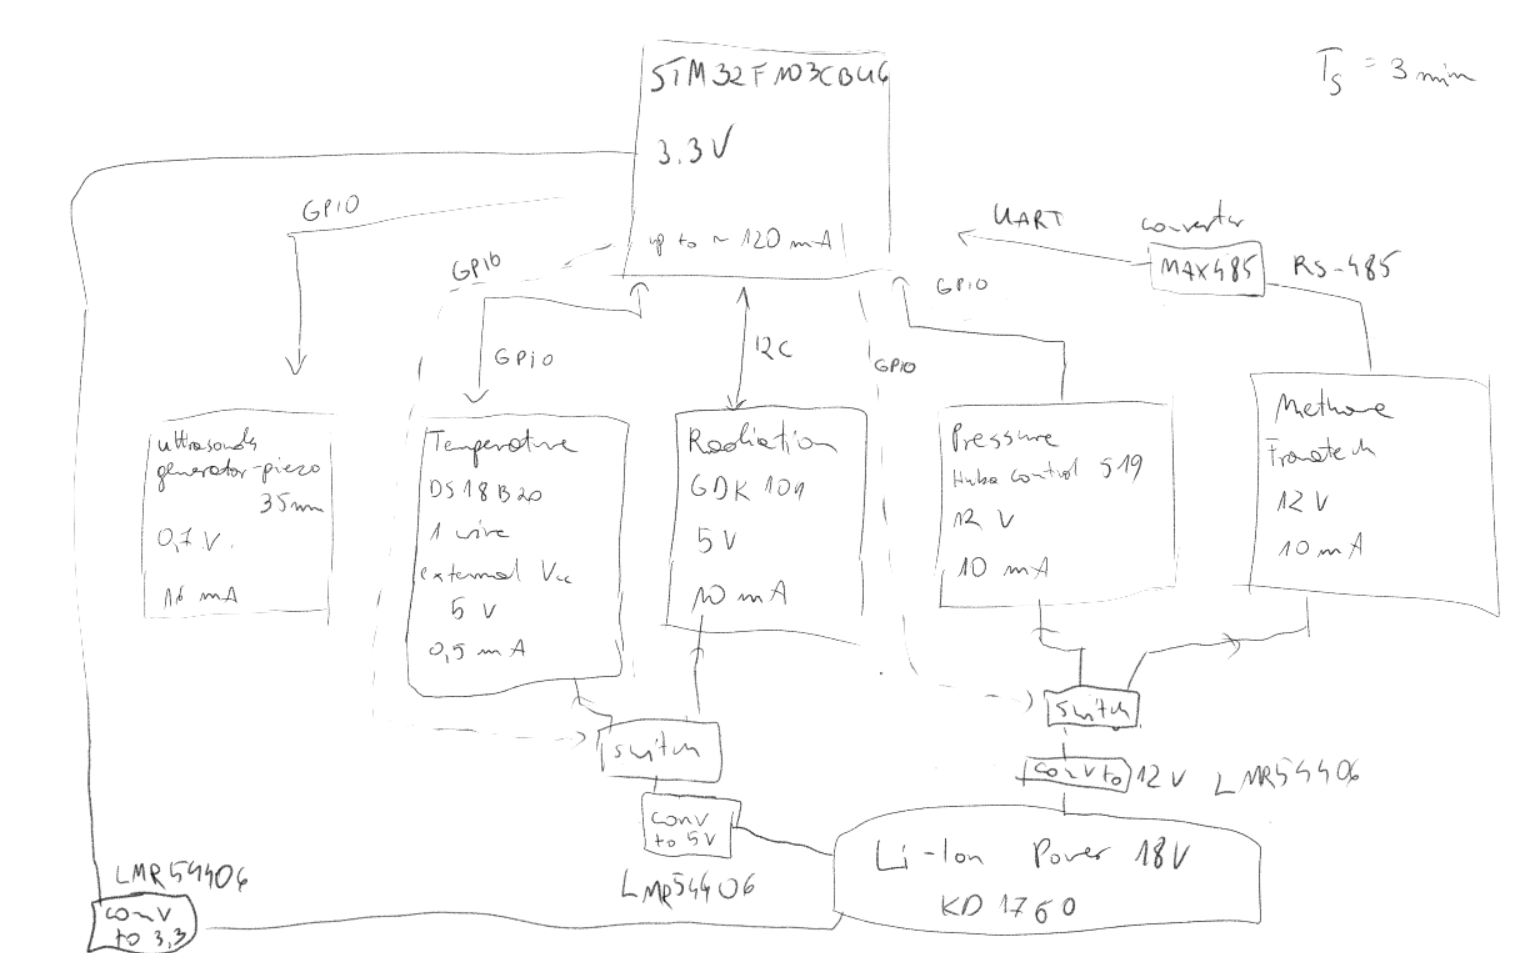 STM32F103CBU6
3.3V
up to ~ 120 mA
Ts = 3 min
GPIO
GPIO
GPIO
I2C
GPIO
GPIO
UART
converter
MAX485
RS-485
ultrasounds
generator-piezo
35mm
0,7 V.
16 mA
Temperature
DS18B20
1 wire
external Vcc
5 V
0,5 mA
Radiation
GDK 101
5 V
10 mA
Pressure
Huba Control 519
12 V
10 mA
Methane
Franatech
12 V
10 mA
switch
switch
conv to 12 V LMR54406
conv
to 5V
LMR54406
Li-Ion Power 18V
KD1760
LMR54406
conv
to 3,3